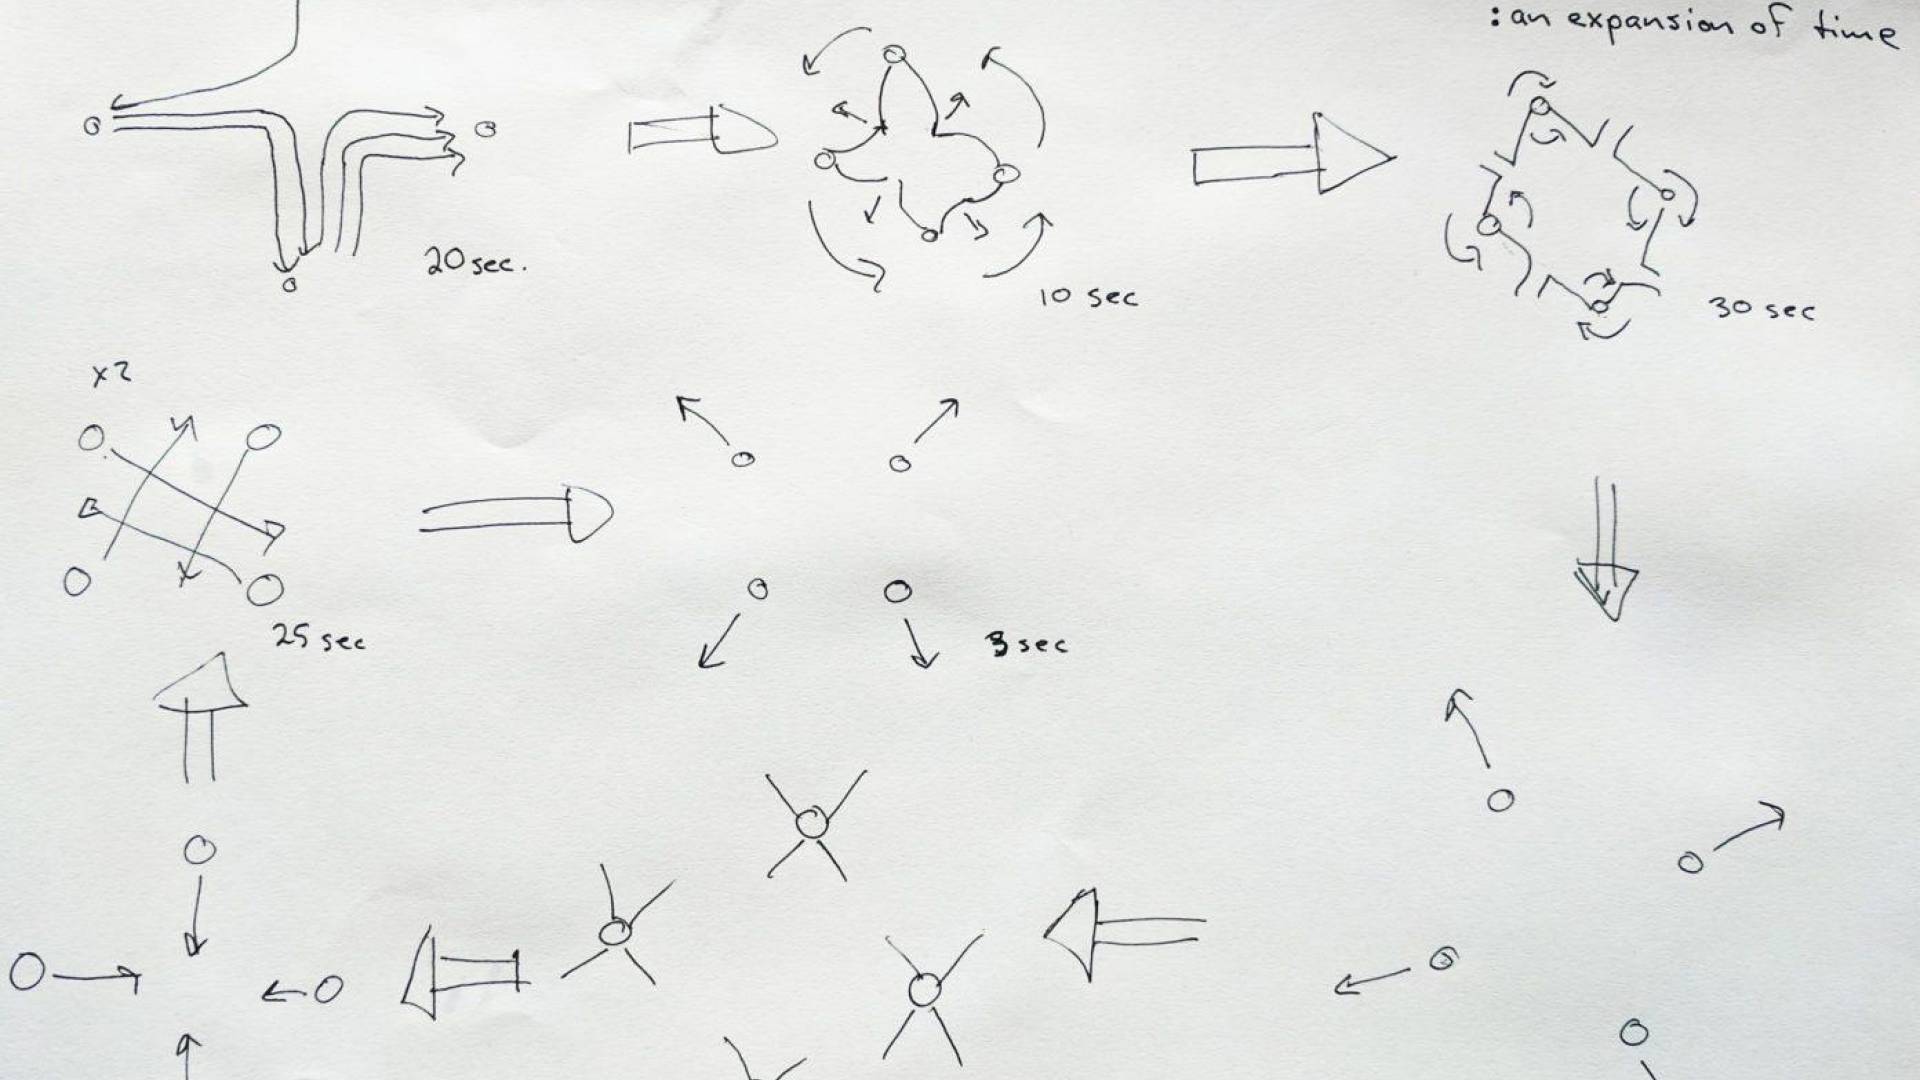 : an expansion of time
20 sec.
10 sec
30 sec
x2
25 sec
3 sec